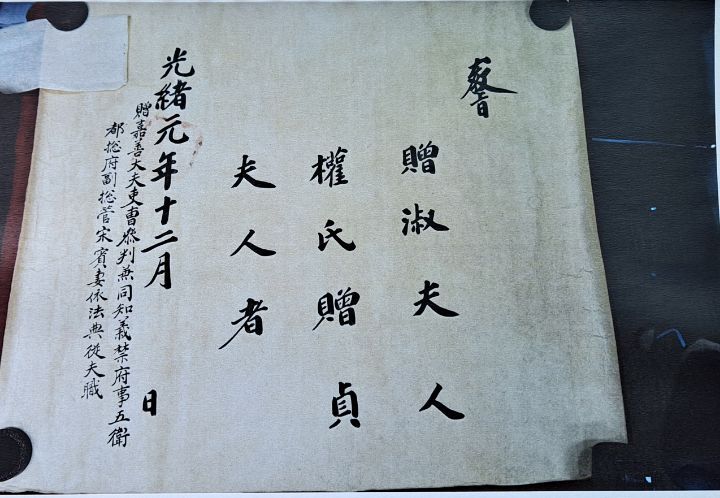 敎旨
贈淑夫人
權氏贈貞
夫人者
光緒元年十二月 日
贈嘉善大夫吏曹叅判兼同知義禁府事五衛
都捴府副捴管宋賓妻依法典從夫職